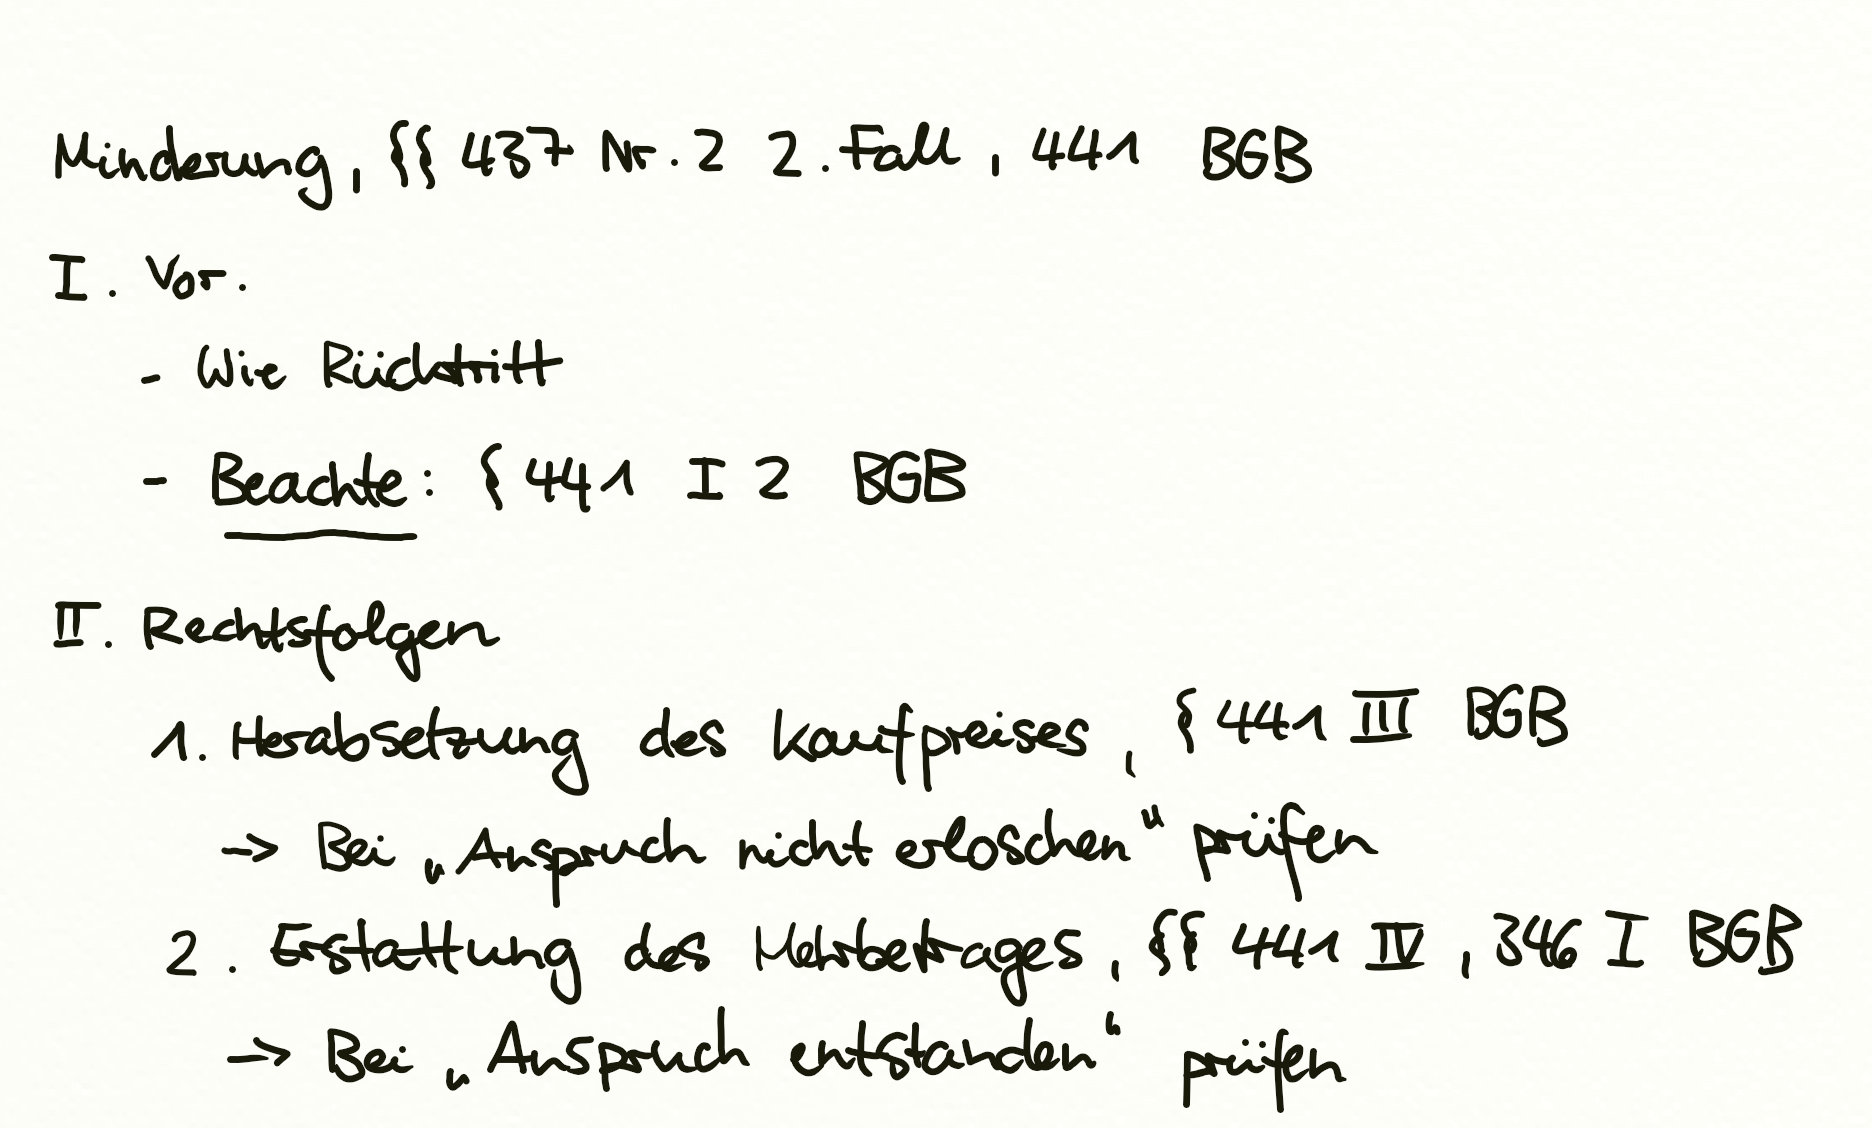 Minderung, §§ 437 Nr. 2 2. Fall, 441 BGB
I. Vor.
- Wie Rücktritt
- Beachte: § 441 I 2 BGB
II. Rechtsfolgen
1. Herabsetzung des Kaufpreises, § 441 III BGB
→ Bei „Anspruch nicht erloschen“ prüfen
2. Erstattung des Mehrbetrages, §§ 441 IV, 346 I BGB
→ Bei „Anspruch entstanden“ prüfen